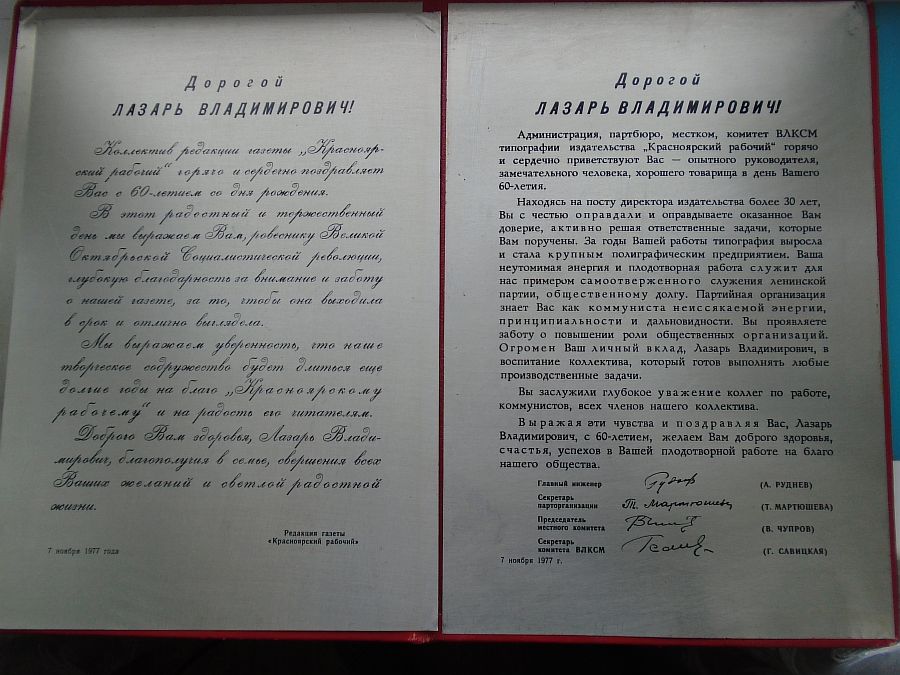 Дорогой
ЛАЗАРЬ ВЛАДИМИРОВИЧ!
Коллектив редакции газеты „Краснояр-
ский рабочий“ горячо и сердечно поздравляет
Вас с 60-летием со дня рождения.
В этот радостный и торжественный
день мы выражаем Вам, ровеснику Великой
Октябрьской Социалистической революции,
глубокую благодарность за внимание и заботу
о нашей газете, за то, чтобы она выходила
в срок и отлично выглядела.
Мы выражаем уверенность, что наше
творческое содружество будет длиться еще
долгие годы на благо „Красноярскому
рабочему“ и на радость его читателям.
Доброго Вам здоровья, Лазарь Влади-
мирович, благополучия в семье, свершения всех
Ваших желаний и светлой радостной
жизни.
Редакция газеты
«Красноярский рабочий»
7 ноября 1977 года
Дорогой
ЛАЗАРЬ ВЛАДИМИРОВИЧ!
Администрация, партбюро, местком, комитет ВЛКСМ
типографии издательства „Красноярский рабочий“ горячо
и сердечно приветствуют Вас — опытного руководителя,
замечательного человека, хорошего товарища в день Вашего
60-летия.
Находясь на посту директора издательства более 30 лет,
Вы с честью оправдали и оправдываете оказанное Вам
доверие, активно решая ответственные задачи, которые
Вам поручены. За годы Вашей работы типография выросла
и стала крупным полиграфическим предприятием. Ваша
неутомимая энергия и плодотворная работа служит для
нас примером самоотверженного служения ленинской
партии, общественному долгу. Партийная организация
знает Вас как коммуниста неиссякаемой энергии,
принципиальности и дальновидности. Вы проявляете
заботу о повышении роли общественных организаций.
Огромен Ваш личный вклад, Лазарь Владимирович, в
воспитание коллектива, который готов выполнять любые
производственные задачи.
Вы заслужили глубокое уважение коллег по работе,
коммунистов, всех членов нашего коллектива.
Выражая эти чувства и поздравляя Вас, Лазарь
Владимирович, с 60-летием, желаем Вам доброго здоровья,
счастья, успехов в Вашей плодотворной работе на благо
нашего общества.
Главный инженер (А. РУДНЕВ)
Секретарь
парторганизации Т. Мартюшева (Т. МАРТЮШЕВА)
Председатель
местного комитета (В. ЧУПРОВ)
Секретарь
комитета ВЛКСМ (Г. САВИЦКАЯ)
7 ноября 1977 г.